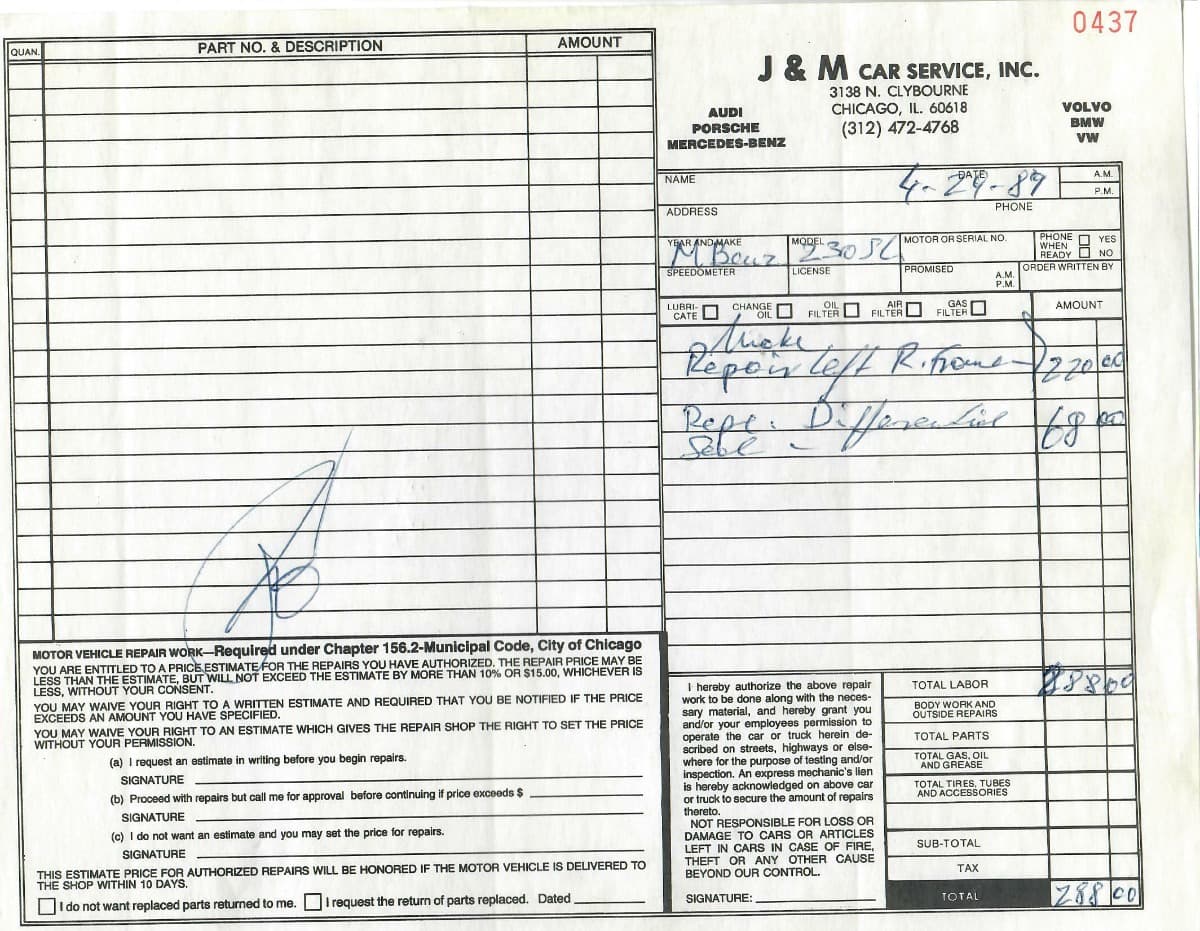 0437
QUAN.
PART NO. & DESCRIPTION
AMOUNT
J & M CAR SERVICE, INC.
3138 N. CLYBOURNE
CHICAGO, IL. 60618
(312) 472-4768
AUDI
PORSCHE
MERCEDES-BENZ
VOLVO
BMW
VW
NAME
DATE
4-24-89
A.M.
P.M.
ADDRESS
PHONE
YEAR AND MAKE
M Benz
MODEL
230SL
MOTOR OR SERIAL NO.
PHONE WHEN READY
YES
NO
SPEEDOMETER
LICENSE
PROMISED
A.M.
P.M.
ORDER WRITTEN BY
LUBRI-
CATE
CHANGE
OIL
OIL
FILTER
AIR
FILTER
GAS
FILTER
AMOUNT
Repair left R. Frame 220 00
Repl. Differential 68 00
Seal
MOTOR VEHICLE REPAIR WORK—Required under Chapter 156.2-Municipal Code, City of Chicago
YOU ARE ENTITLED TO A PRICE ESTIMATE FOR THE REPAIRS YOU HAVE AUTHORIZED. THE REPAIR PRICE MAY BE
LESS THAN THE ESTIMATE, BUT WILL NOT EXCEED THE ESTIMATE BY MORE THAN 10% OR $15.00, WHICHEVER IS
LESS, WITHOUT YOUR CONSENT.
YOU MAY WAIVE YOUR RIGHT TO A WRITTEN ESTIMATE AND REQUIRED THAT YOU BE NOTIFIED IF THE PRICE
EXCEEDS AN AMOUNT YOU HAVE SPECIFIED.
YOU MAY WAIVE YOUR RIGHT TO AN ESTIMATE WHICH GIVES THE REPAIR SHOP THE RIGHT TO SET THE PRICE
WITHOUT YOUR PERMISSION.
(a) I request an estimate in writing before you begin repairs.
SIGNATURE
(b) Proceed with repairs but call me for approval before continuing if price exceeds $
SIGNATURE
(c) I do not want an estimate and you may set the price for repairs.
SIGNATURE
THIS ESTIMATE PRICE FOR AUTHORIZED REPAIRS WILL BE HONORED IF THE MOTOR VEHICLE IS DELIVERED TO
THE SHOP WITHIN 10 DAYS.
I do not want replaced parts returned to me. I request the return of parts replaced. Dated
I hereby authorize the above repair
work to be done along with the neces-
sary material, and hereby grant you
and/or your employees permission to
operate the car or truck herein de-
scribed on streets, highways or else-
where for the purpose of testing and/or
inspection. An express mechanic's lien
is hereby acknowledged on above car
or truck to secure the amount of repairs
thereto.
NOT RESPONSIBLE FOR LOSS OR
DAMAGE TO CARS OR ARTICLES
LEFT IN CARS IN CASE OF FIRE,
THEFT OR ANY OTHER CAUSE
BEYOND OUR CONTROL.
SIGNATURE:
TOTAL LABOR 288 00
BODY WORK AND
OUTSIDE REPAIRS
TOTAL PARTS
TOTAL GAS, OIL
AND GREASE
TOTAL TIRES, TUBES
AND ACCESSORIES
SUB-TOTAL
TAX
TOTAL 288 00